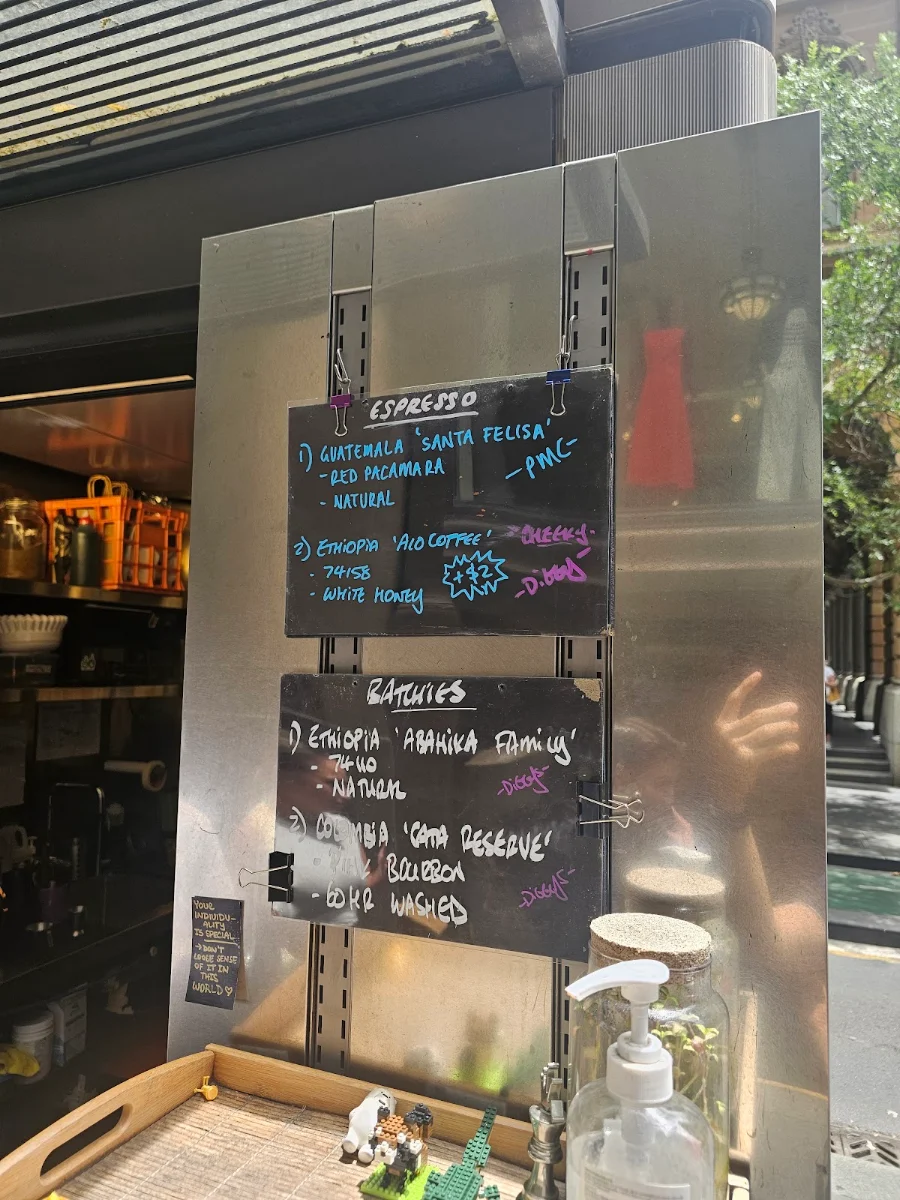 ESPRESSO
1) GUATEMALA 'SANTA FELISA'
- RED PACAMARA
-PMC-
- NATURAL
2) ETHIOPIA 'ALO COFFEE'
CHEEKY-
- 74158
+$2
-DiGGY-
- WHITE HONEY
BATCHIES
1) ETHIOPIA 'ABAHIKA FAMiLY'
- 74110
-DiGGYS-
- NATURAL
2) COLOMBIA 'CATA RESERVE'
BOURBON
- 60HR WASHED
-DiGGYS-
YOUR
INDIVIDU-
ALITY
IS SPECIAL
→ DON'T
LOOSE SENSE
OF IT IN
THIS
WORLD ♡